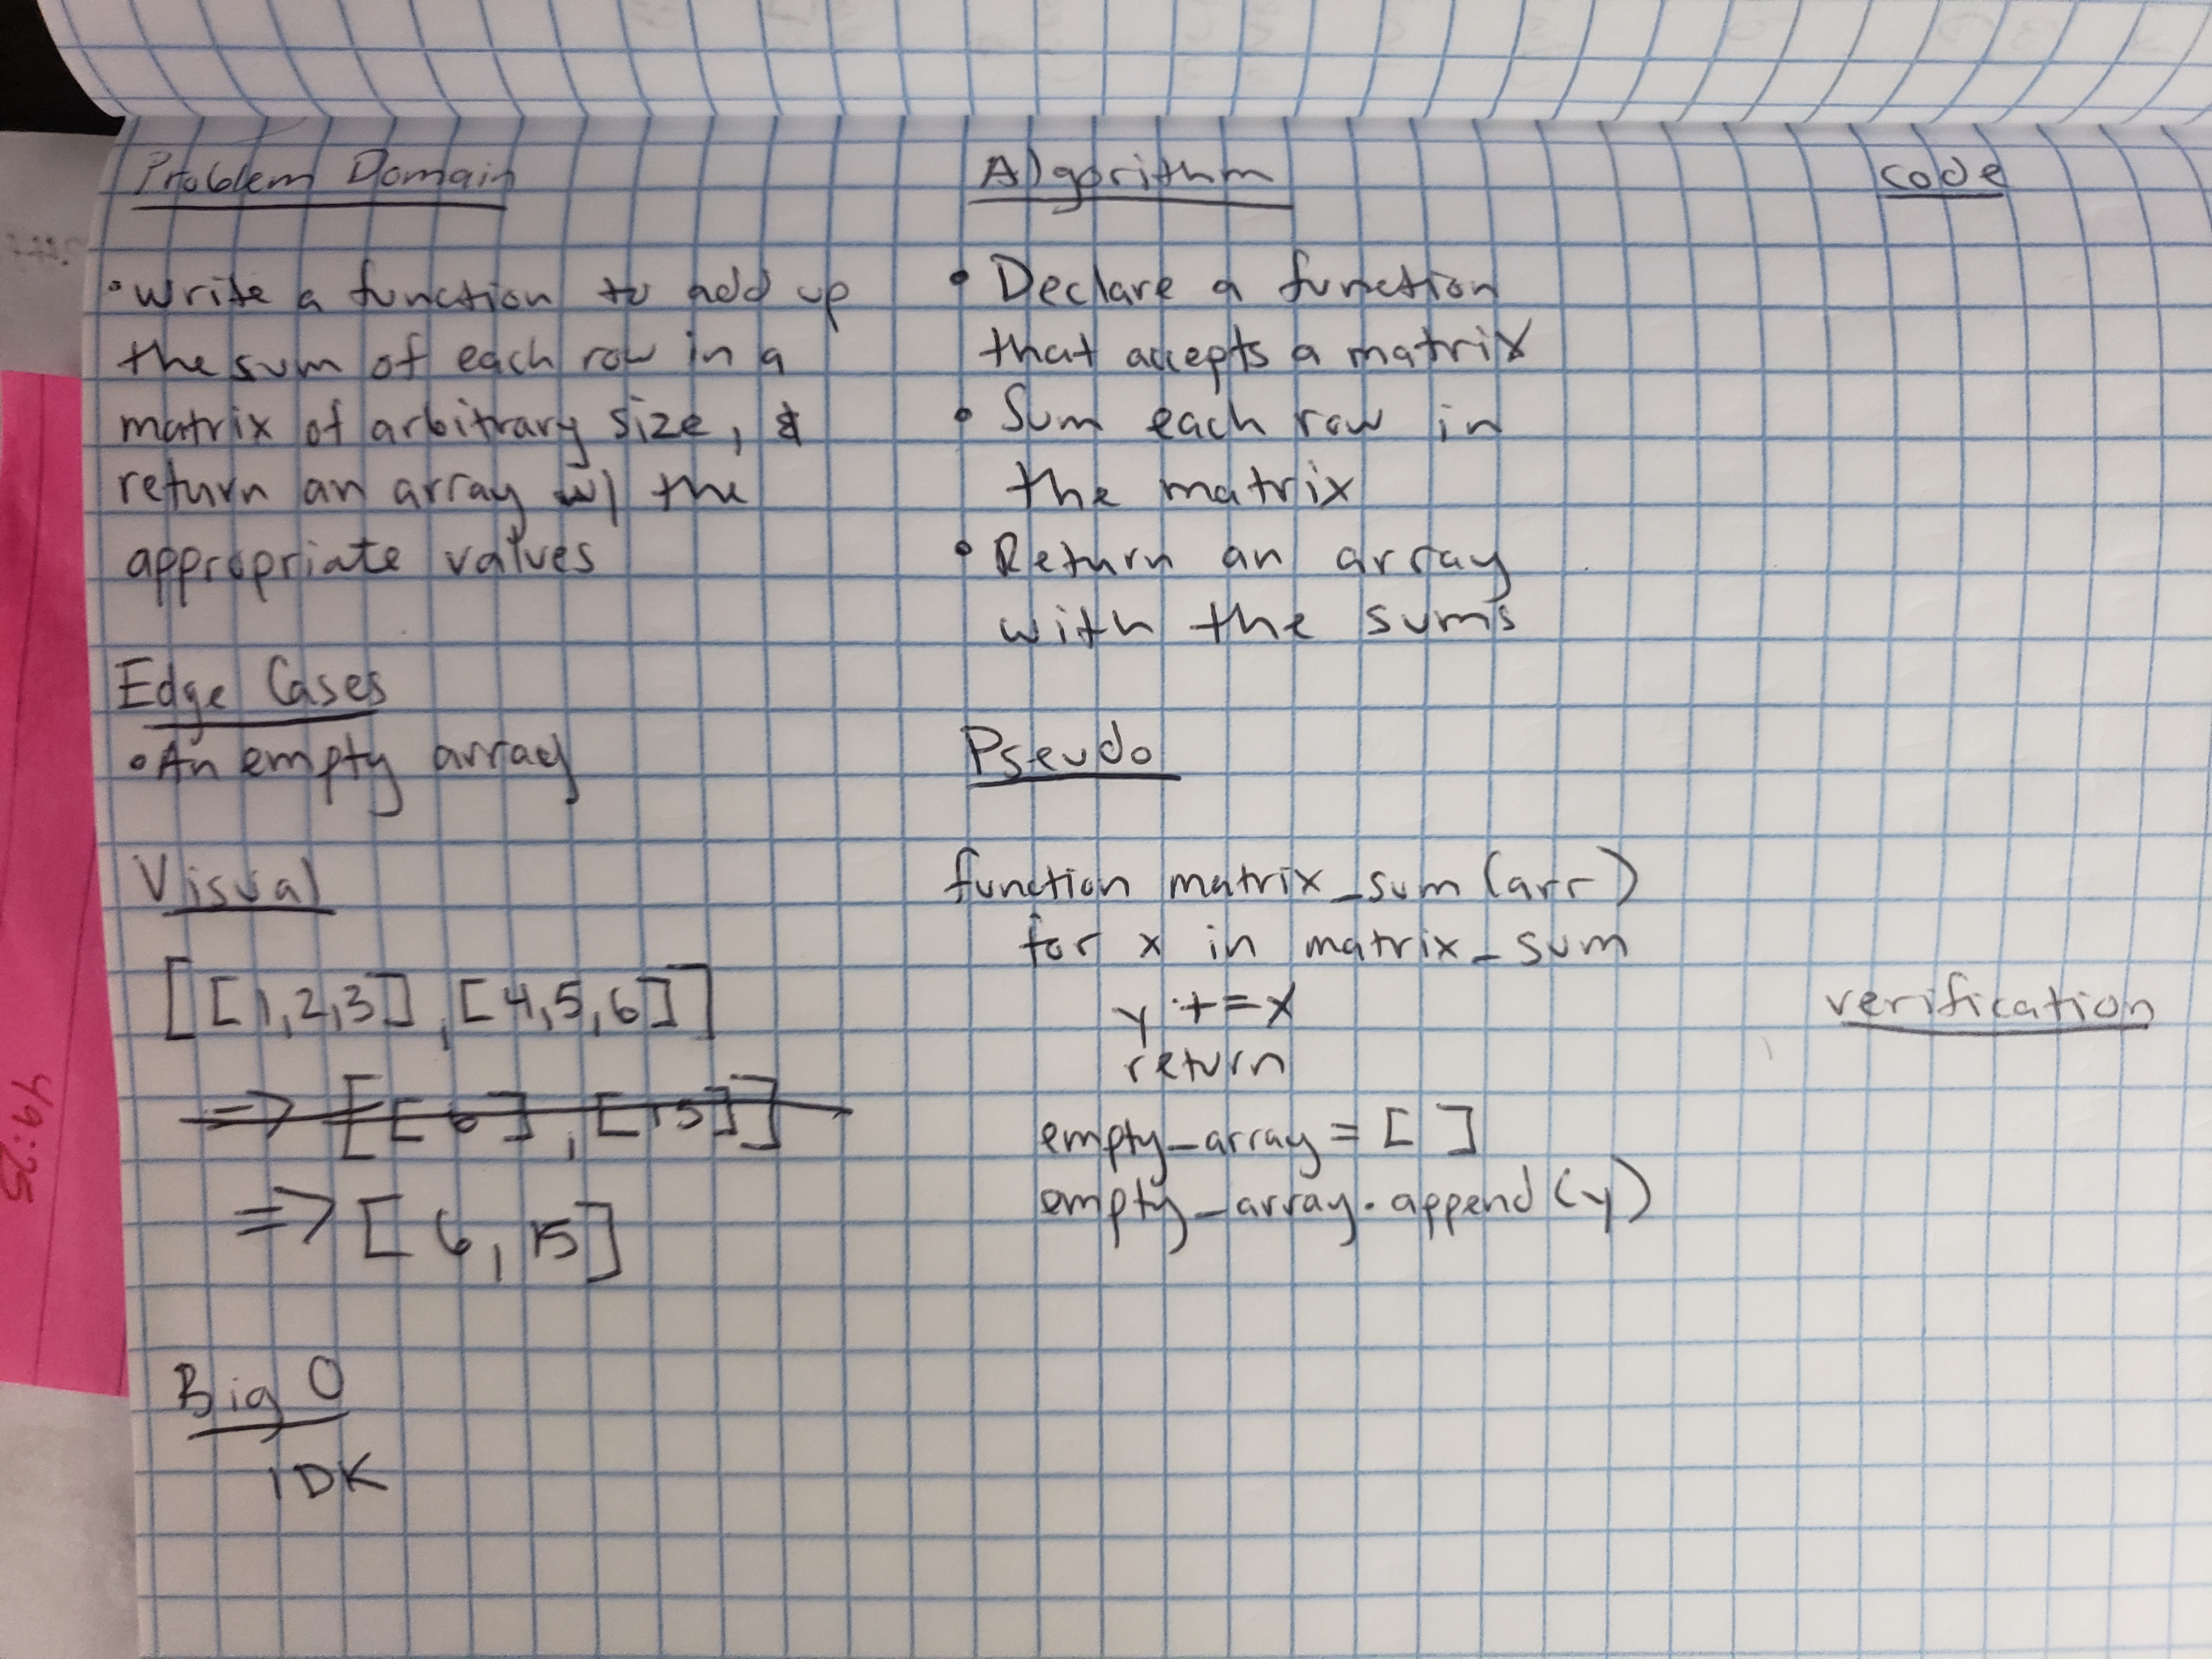 49:25
Problem Domain
• write a function to add up
the sum of each row in a
matrix of arbitrary size, &
return an array w/ the
appropriate values
Edge Cases
• An empty array
Visual
[[1,2,3], [4,5,6]]
=> [[6], [15]]
=> [6, 15]
Big O
IDK
Algorithm
• Declare a function
that accepts a matrix
• Sum each row in
the matrix
• Return an array
with the sums
Pseudo
function matrix_sum (arr)
for x in matrix_sum
y += x
return
empty_array = [ ]
empty_array.append(y)
Code
verification